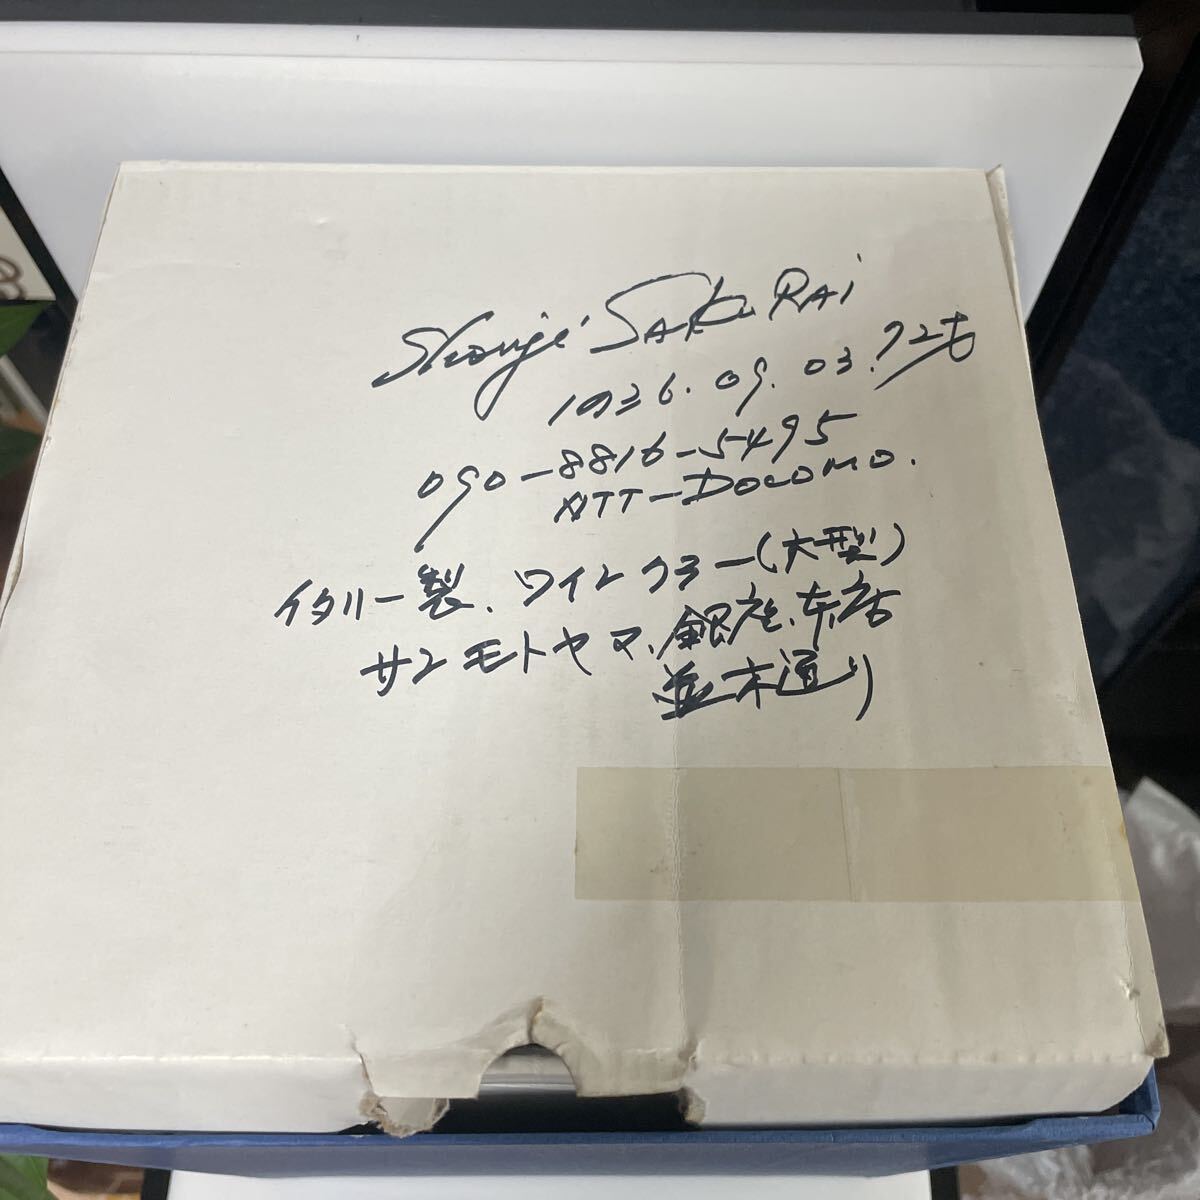 Shouji SAKURAI
1936.09.03.
090-8816-5495
NTT-DOCOMO.
イタリー製、ワインクラー(大型)
サンモトヤマ、銀座、本店
並木通り